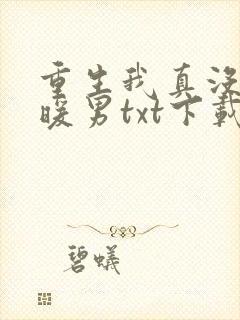 重生我真没
暖男txt下载
碧蚁